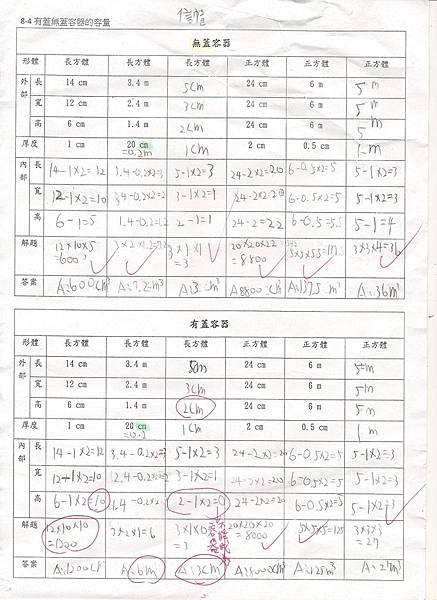 信旭
8-4 有蓋無蓋容器的容量
無蓋容器
形體 長方體 長方體 長方體 正方體 正方體 正方體
外部 長 14 cm 3.4 m 5cm 24 cm 6 m 5 m
寬 12 cm 2.4 m 3cm 24 cm 6 m 5 m
高 6 cm 1.4 m 2cm 24 cm 6 m 5 m
厚度 1 cm 20 cm =0.2m 1cm 2 cm 0.5 cm 1m
內部 長 14-1×2=12 5-1×2=3 24-2×2=20 6-0.5×2=5 5-1×2=3
寬 12-1×2=10 3-1×2=1 24-2×2=20 6-0.5×2=5 5-1×2=3
高 6-1=5 1.4-0.2=1.2 2-1=1 24-2=22 6-0.5=5.5 5-1=4
解題 12×10×5=600 3×1×1=3 20×20×22=8800 3×3×4=36
答案 A:600cm³ A:7.2m³ A:3cm³ A:8800cm³ A:137.5m³ A:36m³
有蓋容器
形體 長方體 長方體 長方體 正方體 正方體 正方體
外部 長 14 cm 3.4 m 5cm 24 cm 6 m 5m
寬 12 cm 2.4 m 3cm 24 cm 6 m 5m
高 6 cm 1.4 m 2cm 24 cm 6 m 5m
厚度 1 cm 20 cm =0.2 1cm 2 cm 0.5 cm 1m
內部 長 14-1×2=12 3.4-0.2×2=3 5-1×2=3 24-2×2=20 6-0.5×2=5 5-1×2=3
寬 12-1×2=10 2.4-0.2×2=2 3-1×2=1 24-2×2=20 6-0.5×2=5 5-1×2=3
高 6-1×2=10 2-1×2=0 24-2×2=20 6-0.5×2=5 5-1×2=3
解題 12×10×10=1200 3×2×1=6 3×1×0=3 20×20×20=8000 5×5×5=125 3×3×3=27
答案 A:1200cm³ A:6m³ A:3cm³ A:8000cm³ A:125m³ A:27m³